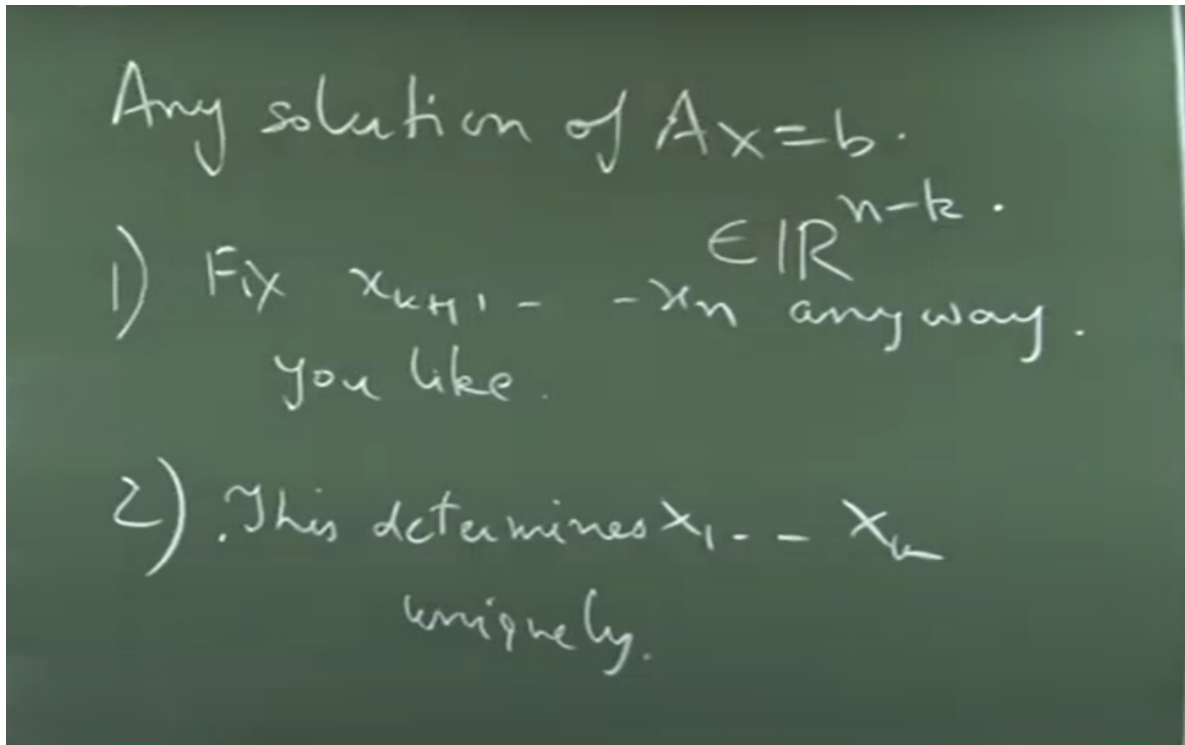 Any solution of Ax=b.
∈ ℝ^{n-k}.
1) Fix x_{k+1}, - - x_n any way.
you like.
2) . This determines x_1 - - x_k
uniquely.